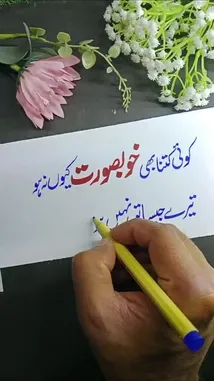 کوئی کتنا بھی خوبصورت کیوں نہ ہو
تیرے جیسا تو نہیں